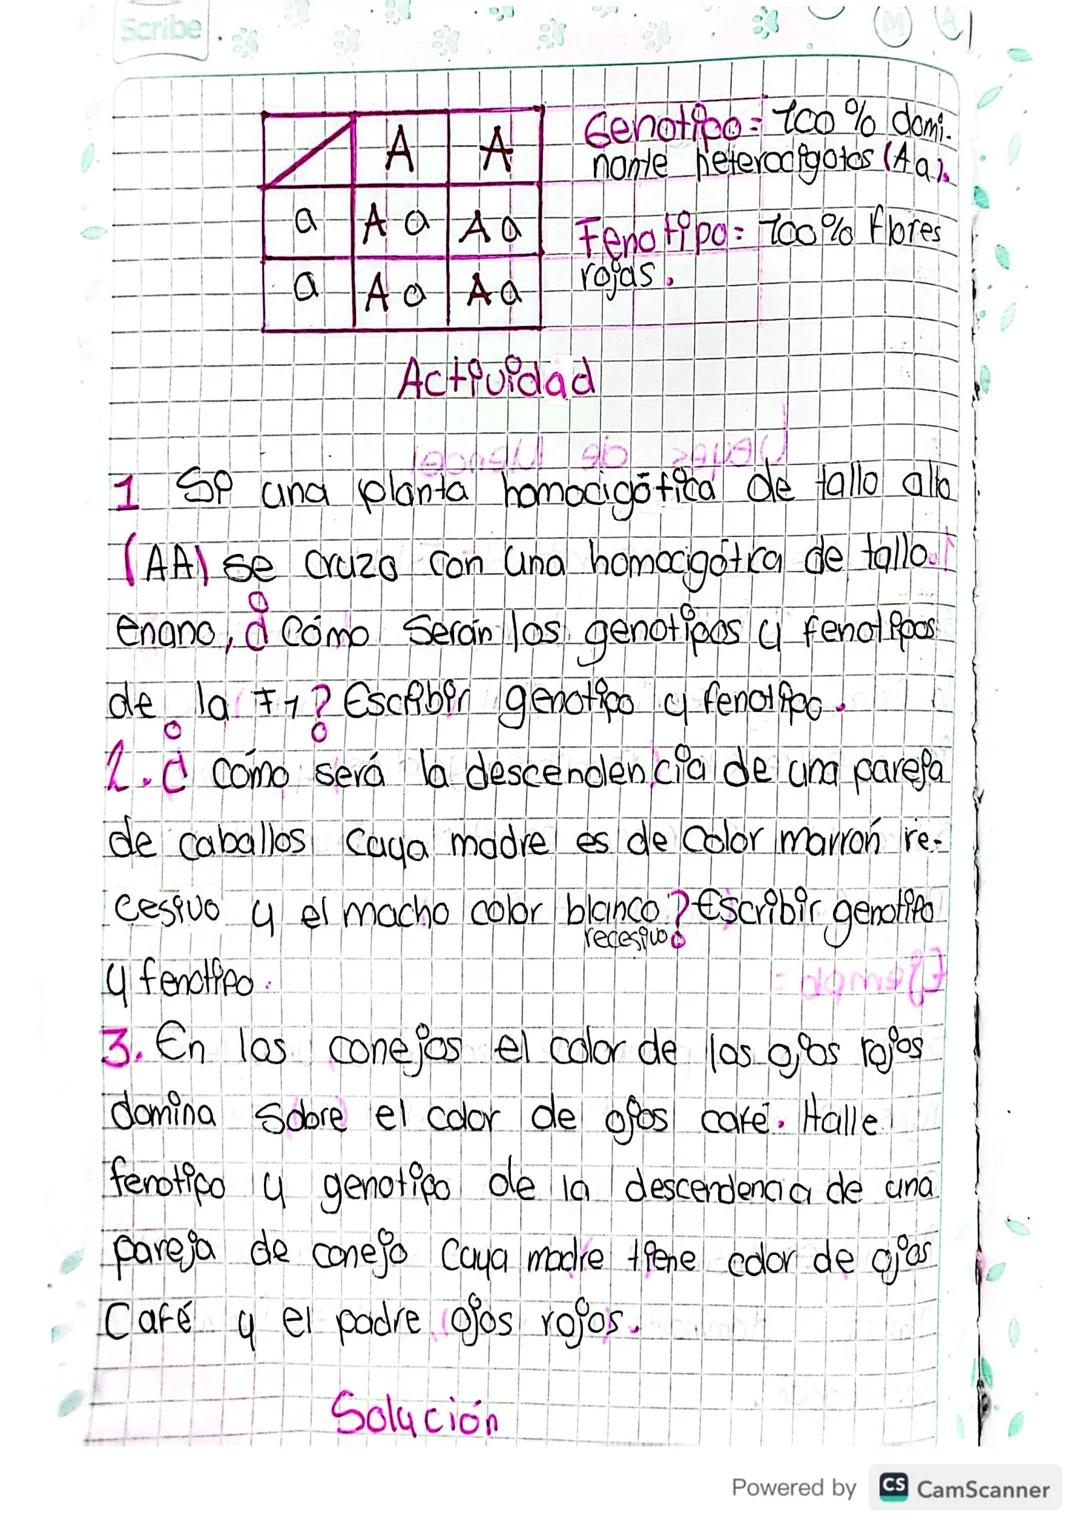 Scribe
M A
A A
a Aa Aa
a Aa Aa
Genotipo= 100% domi-
nante heterocigotos (Aa).
Fenotipo= 100% flores
rojas.
Actividad
1 Si una planta homocigótica de tallo alto
(AA) se cruza con una homocigótica de tallo
enano, ¿Cómo Serán los genotipos y fenotipos
de la F1? Escribir genotipo y fenotipo.
2. ¿ cómo será la descendencia de una pareja
de caballos cuya madre es de color marrón re-
cesivo y el macho color blanco? Escribir genotipo
recesivo
y fenotipo.
3. En los conejos el color de los ojos rojos
domina sobre el color de ojos café. Halle
fenotipo y genotipo de la descendencia de una
pareja de conejo cuya madre tiene color de ojos
Café y el padre ojos rojos.
Solución
Powered by CS CamScanner